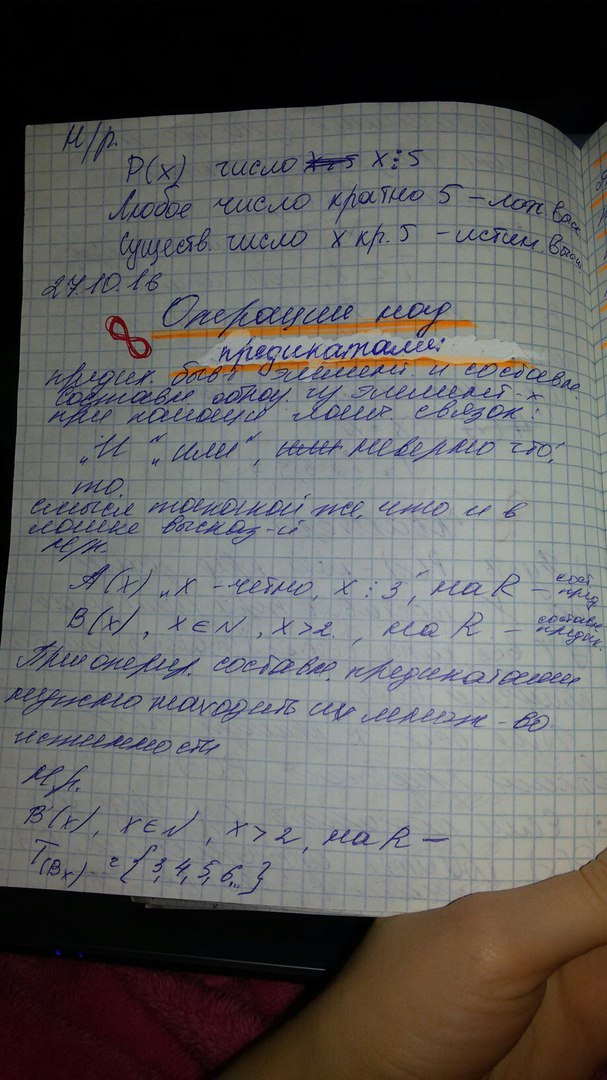 Н/р.
P(x) число x⋮5
Любое число кратно 5 – лож выс
Существ. число x кр. 5 – истин выс
27.10.16
8 Операции над
предикатами:
предик. быв элемент и составн.
составн образ из элемент-х
при помощи логич связок:
„и“ „или“, неверно что,
то.
смысл такой же, что и в
логике высказ-й
Н/р.
A(x) „x - четно, x⋮3“, на R – сост. пред.
B(x), x∈N, x>2, на R – составн. предик.
При опериp. составн. предикатами
нужно находить их множ-во
истинности
Н/р.
B(x), x∈N, x>2, на R –
T(Bx) = {3, 4, 5, 6,..}